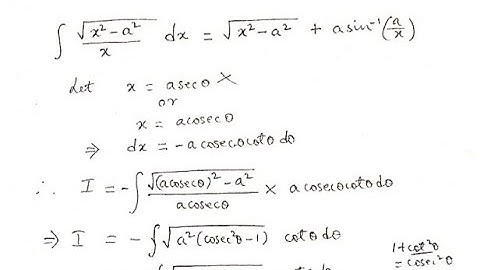 ∫ √(x² − a²)/x dx = √(x² − a²) + a sin⁻¹(a/x)
Let x = a sec θ ×
or
x = a cosec θ
⇒ dx = − a cosec θ cot θ dθ
∴ I = − ∫ √((a cosec θ)² − a²)/(a cosec θ) × a cosec θ cot θ dθ
⇒ I = − ∫ √(a²(cosec²θ − 1)) cot θ dθ
1 + cot²θ
= cosec²θ